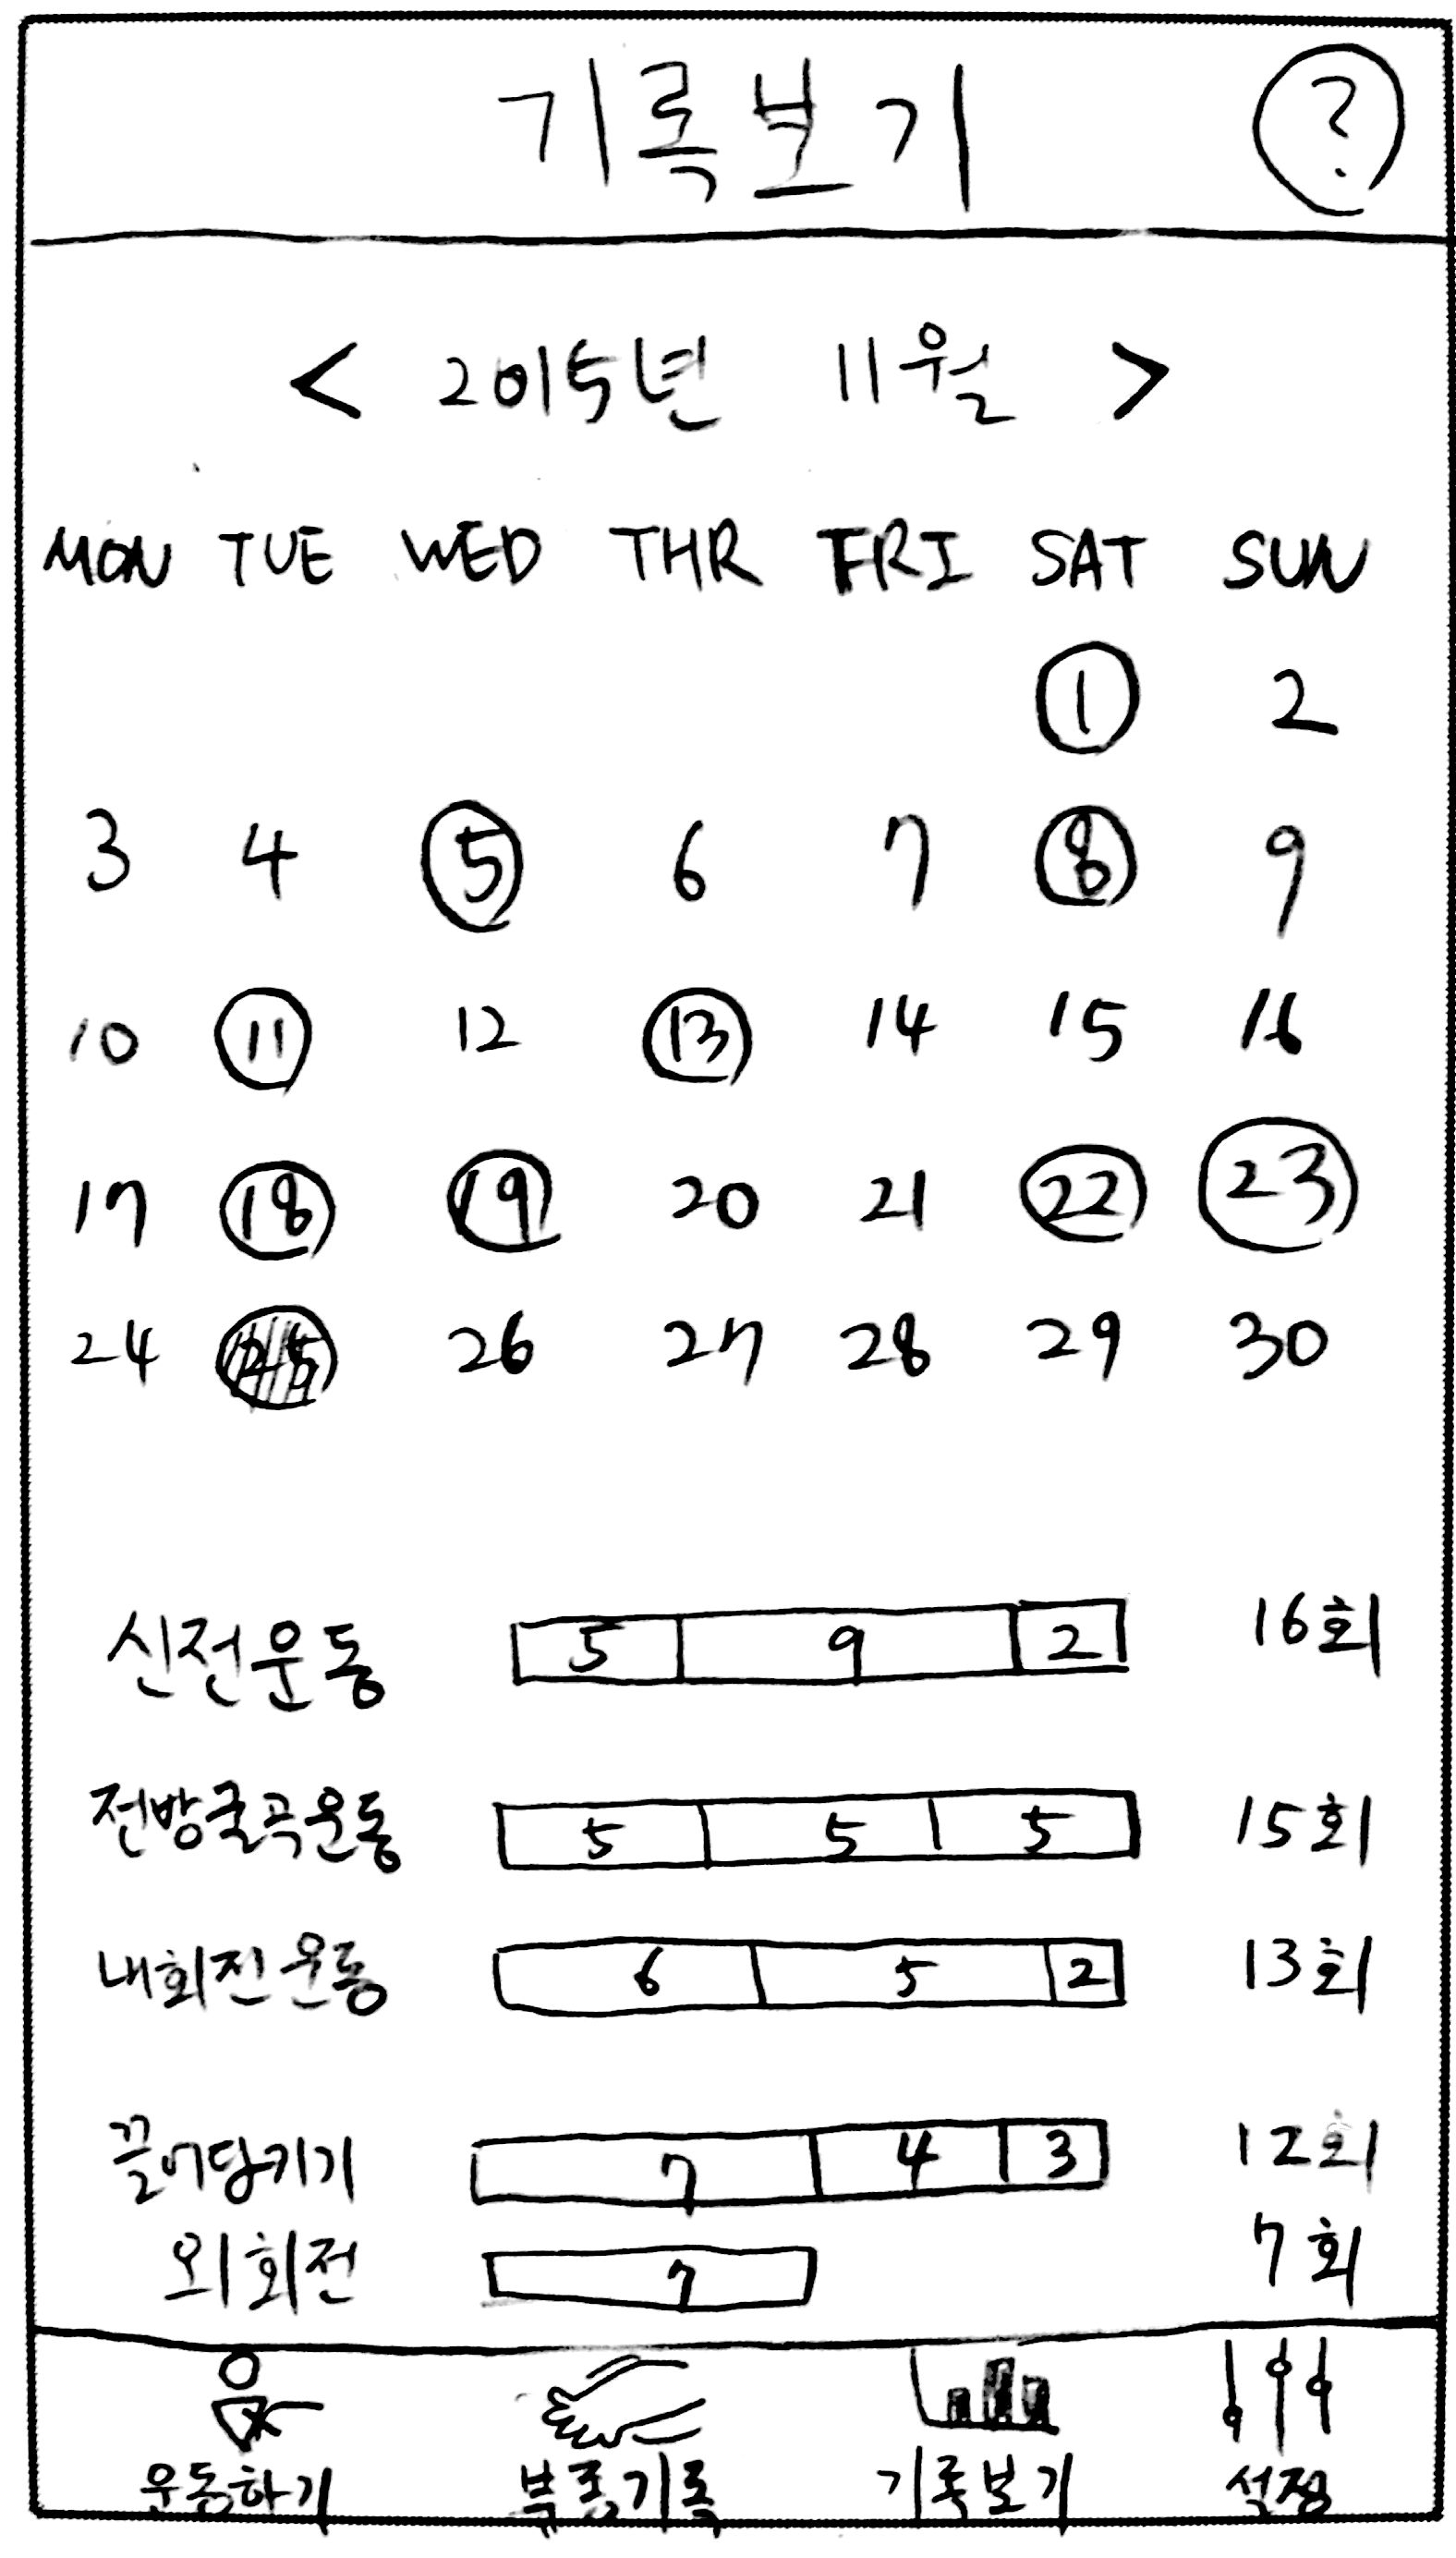 기록보기 ?
< 2015년 11월 >
MON TUE WED THR FRI SAT SUN
1 2
3 4 5 6 7 8 9
10 11 12 13 14 15 16
17 18 19 20 21 22 23
24 25 26 27 28 29 30
신전운동 5 9 2 16회
전방굴곡운동 5 5 5 15회
내회전운동 6 5 2 13회
끌어당키기 7 4 3 12회
외회전 7 7회
운동하기 부종기록 기록보기 설정